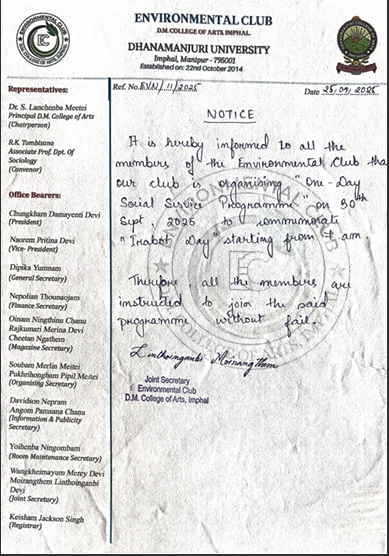 ENVIRONMENTAL CLUB
D.M. COLLEGE OF ARTS, IMPHAL.
DHANAMANJURI UNIVERSITY
Imphal, Manipur - 795001
Established on: 22nd October 2014
Ref. No. EVN/11/2025
Date 25/09/2025
Representatives:
Dr. S. Lanchenba Meetei
Principal D.M. College of Arts
(Chairperson)
R.K. Tombisana
Associate Prof. Dpt. Of
Sociology
(Convenor)
Office Bearers:
Chungkham Damayenti Devi
(President)
Naorem Pritina Devi
(Vice- President)
Dipika Yumnam
(General Secretary)
Nepolian Thounaojam
(Finance Secretary)
Oinam Ningthinu Chanu
Rajkumari Merina Devi
Cheetan Ngathem
(Magazine Secretary)
Soubam Merlin Meitei
Pukhrihongbam Pipil Meitei
(Organising Secretary)
Davidson Nepram
Angom Pamsana Chanu
(Information & Publicity
Secretary)
Yoihenba Ningombam
(Room Maintenance Secretary)
Wangkheimayum Merey Devi
Moirangthem Linthoinganbi
Devi
(Joint Secretary)
Keisham Jackson Singh
(Registrar)
NOTICE
It is hereby informed to all the
members of the Environmental Club tha
our club is organising "One-Day
Social Service Programme" on 30th
Sept, 2025 to commemorate
"Irabot Day" starting from 7 am
Therefore, all the members are
instructed to join the said
programme without fail.
Linthoinganbi Moirangthem
Joint Secretary
Environmental Club
D.M. College of Arts, Imphal